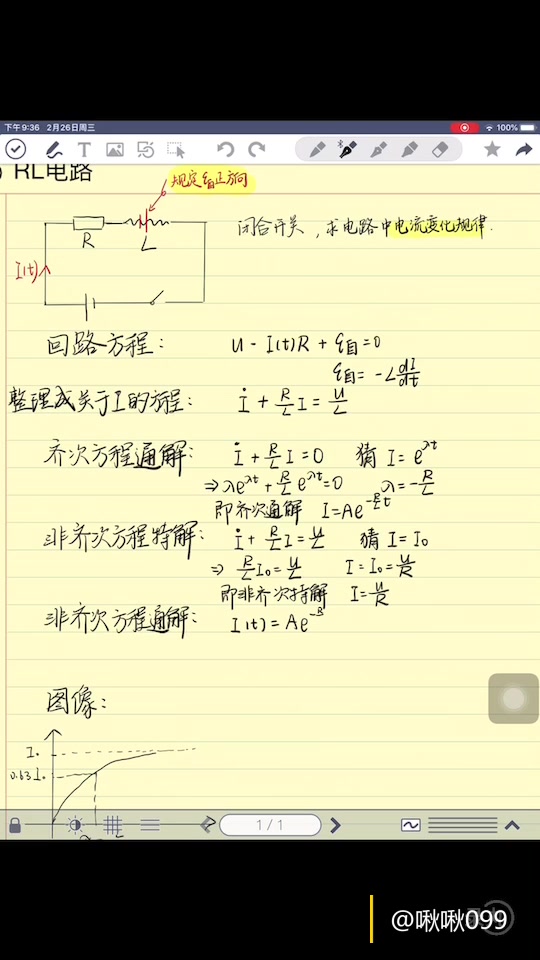 下午9:36 2月26日周三
100%
RL电路
规定ε自正方向
R
L
I(t)
闭合开关，求电路中电流变化规律.
回路方程：  U - I(t)R + ε自 = 0
ε自 = -L dI/dt
整理成关于I的方程：  İ + R/L I = U/L
齐次方程通解：  İ + R/L I = 0  猜 I = e^λt
⇒ λe^λt + R/L e^λt = 0  λ = -R/L
即齐次通解  I = Ae^-R/L t
非齐次方程特解：  İ + R/L I = U/L  猜 I = I₀
⇒ R/L I₀ = U/L  I = I₀ = U/R
即非齐次特解  I = U/R
非齐次方程通解：  I(t) = Ae^-R
图像：
I₀
0.63 I₀
1/1
@啾啾099